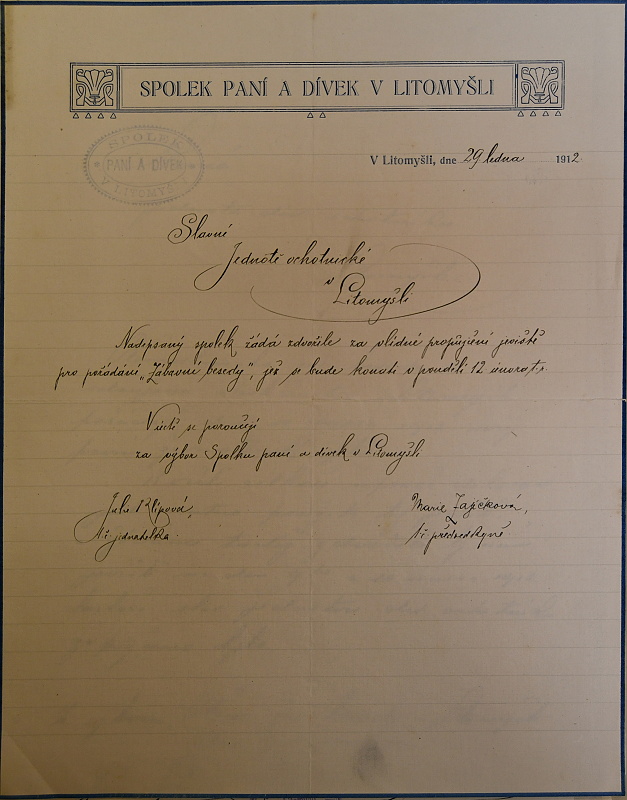 SPOLEK PANÍ A DÍVEK V LITOMYŠLI
SPOLEK
PANÍ A DÍVEK
V LITOMYŠLI
V Litomyšli, dne 29 ledna 1912.
Slavné
Jednotě ochotnické
v
Litomyšli
Nadepsaný spolek žádá zdvořile za vlídné propůjčení jeviště
pro pořádání „Zábavní besedy", jež se bude konati v pondělí 12. února t. r.
V úctě se poroučejí
za výbor Spolku paní a dívek v Litomyšli
Julie
Marie Zajíčková,
t. č. jednatelka.
t. č. předsedkyně